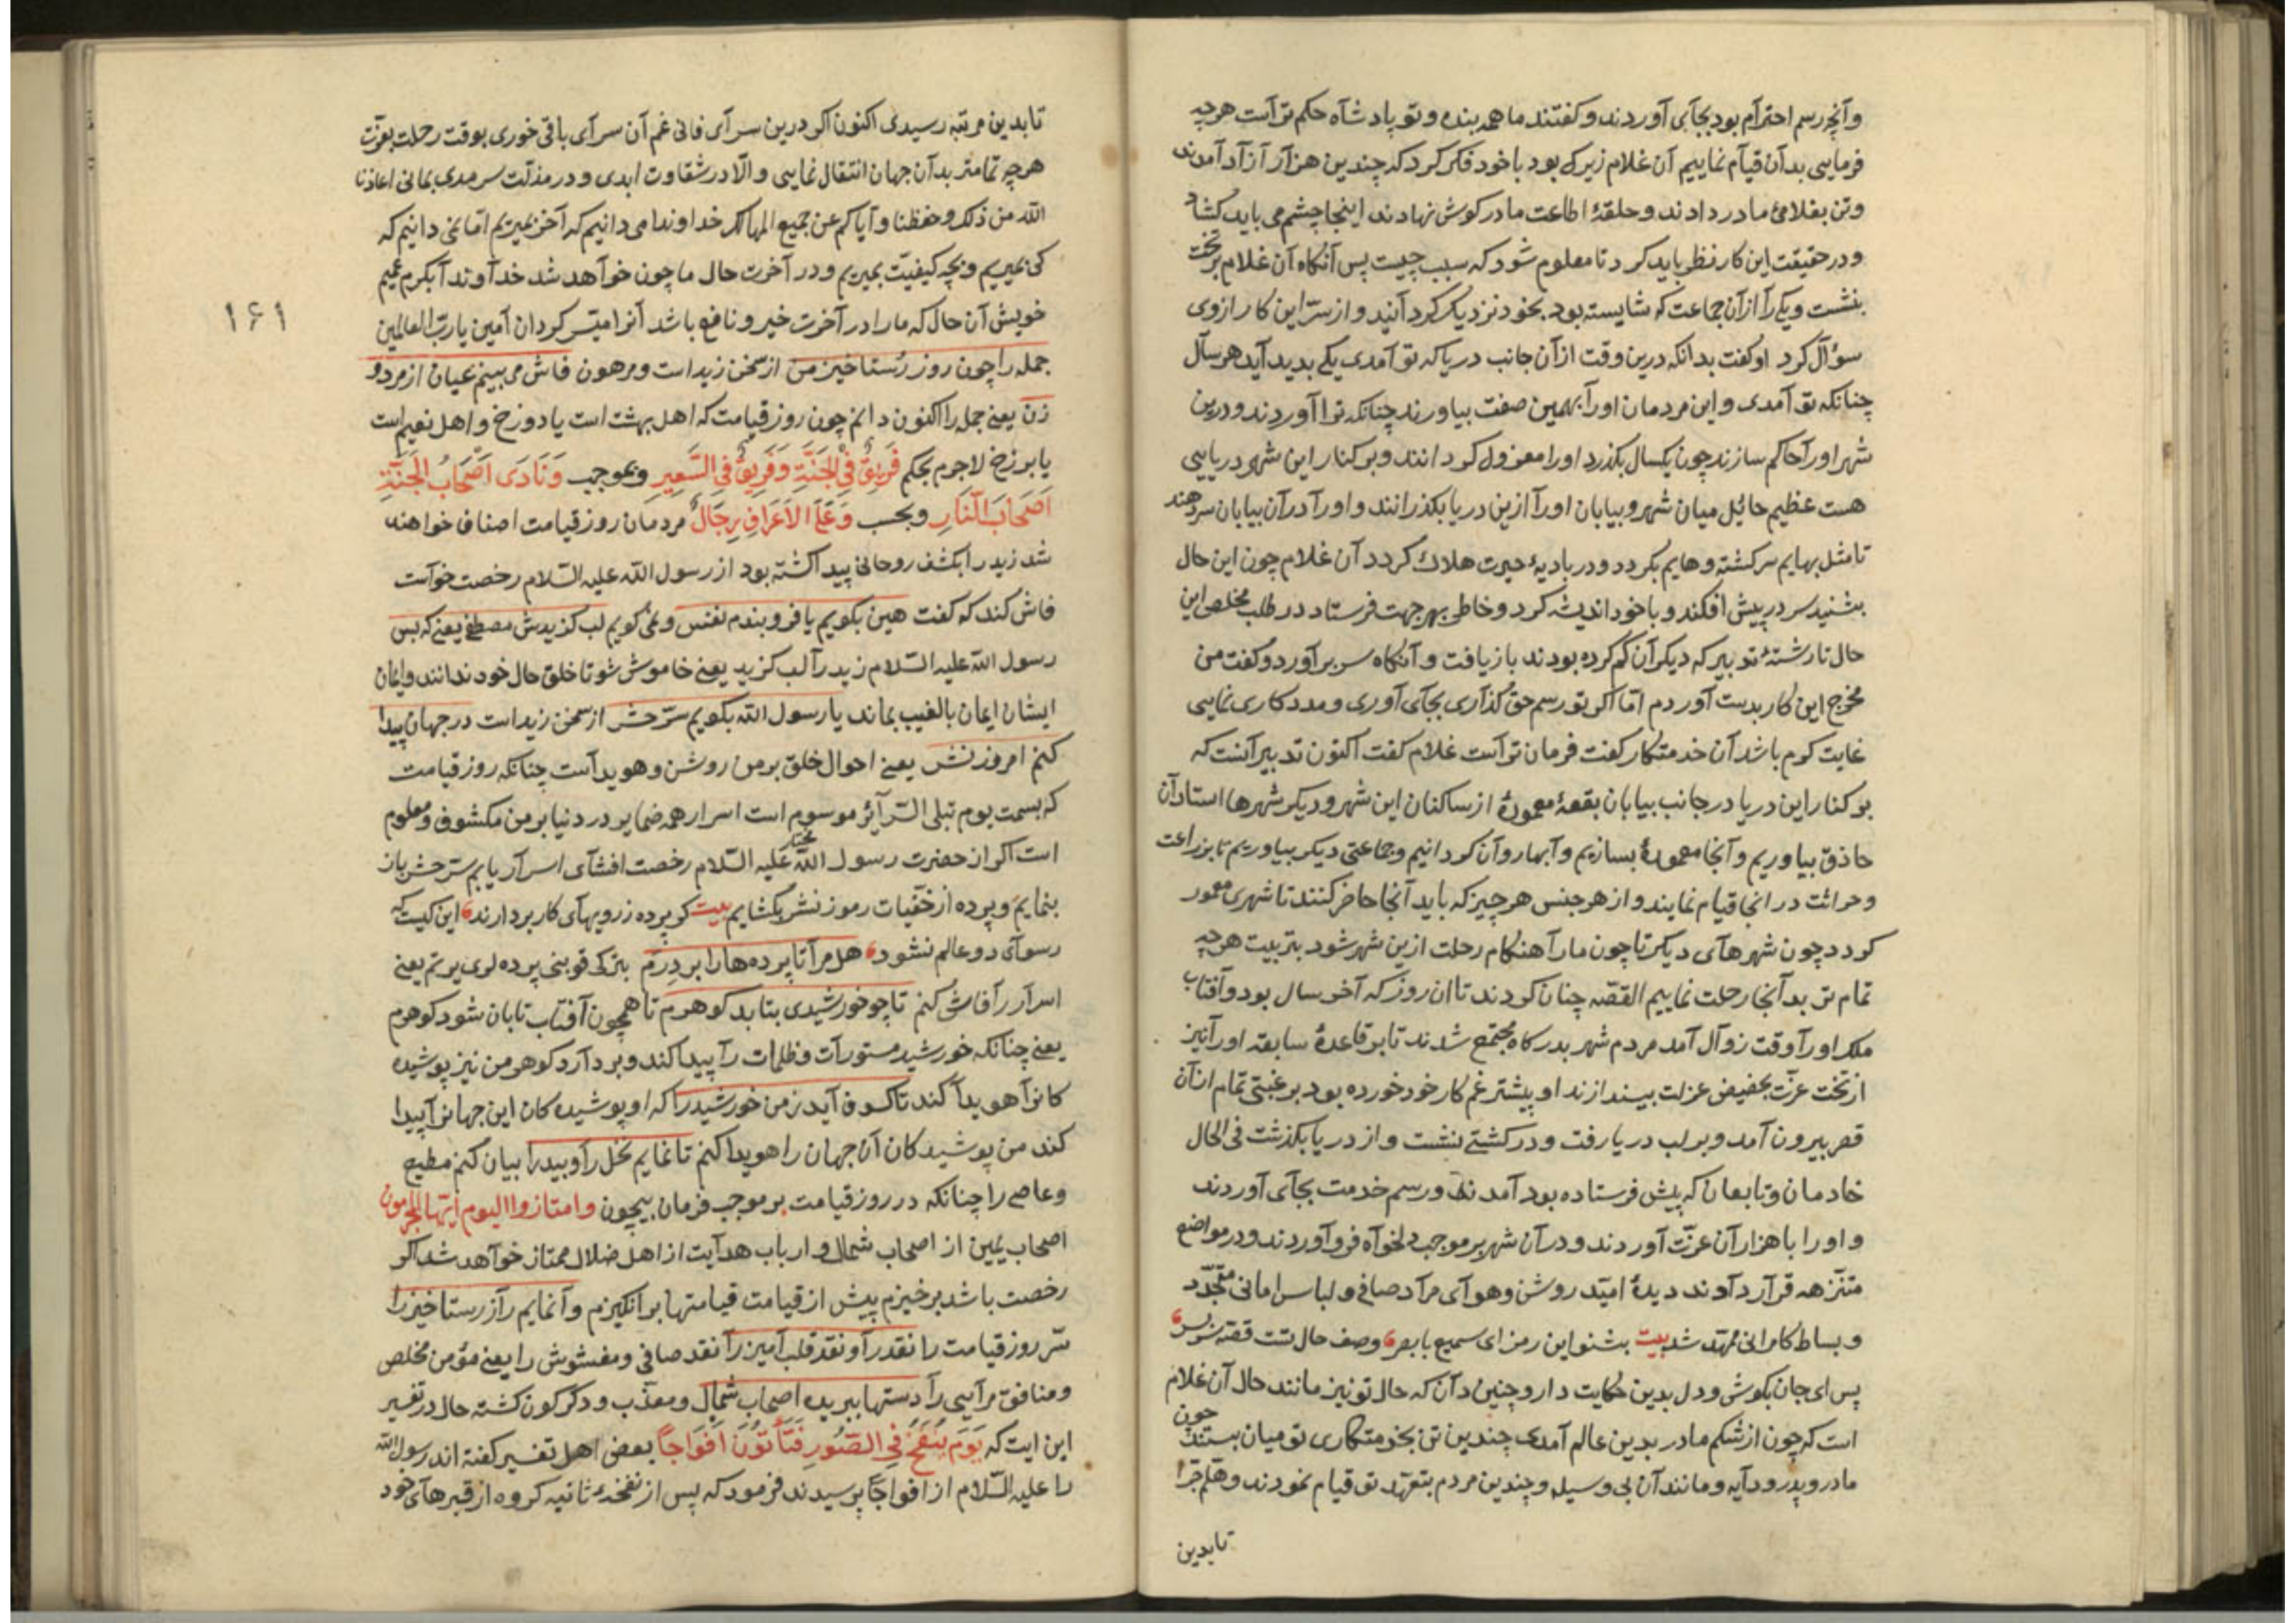 وآنچه رسم احترام بود بجآی آوردند وکفتند ما همه بنده وتو پادشاه حکم تراست هرچه
فرمایی بدآن قیآم نماییم آن غلام زیرک بود باخود فکر کرد که چندین هزار آزاد آمدند
وتن بغلامئ ما در دادند وحلقۀ اطاعت ما در کوش نهادند اینجا چشم می باید کشاد
ودر حقیقت این کار نظر باید کرد تا معلوم شود که سبب چیست پس آنکاه آن غلام بر تخت
بنشست ویکی را از آن جماعت که شایسته بود بخود نزدیک کردآنید واز سرّ این کار ازوی
سؤال کرد اوکفت بدانکه درین وقت از آن جانب دریا که تو آمدی یکی بدید آید هر سال
چنانکه تو آمدی واین مردمان اورآ بهمین صفت بیاورند چنانکه ترا آوردند ودرین
شهر اورآ حاکم سازند چون یکسال بکذرد اورا معزول کردانند وبر کنار این شهر دریایی
هست عظیم حائل میان شهر وبیابان اورآ ازین دریا بکذرانند واورآ درآن بیابان سر دهند
تا مثل بهایم سرکشته وهایم بکردد ودر بادیۀ حیرت هلاک کردد آن غلام چون این حال
بشنید سر در پیش افکند وباخود اندیشه کرد وخاطر بهر جهت فرستاد در طلب مخلص این
حال تا رشتۀ تدبیر که دیکرآن کم کرده بودند باز یافت وآنکاه سر برآورد وکفت من
مخرج این کار بدست آوردم امّا اکر تو رسم حق کذاری بجآی آوری ومددکاری نمایی
غایت کرم باشد آن خدمتکار کفت فرمان تراست غلام کفت اکنون تدبیر آنست که
بر کنار این دریا در جانب بیابان بقعۀ معمورۀ از ساکنان این شهر ودیکر شهرها استادآن
حاذق بیاوریم وآنجا معمورۀ بسازیم وآبها روآن کردانیم وجماعتی دیکر بیاوریم تا بزراعت
وحراثت در انجا قیام نمایند واز هر جنس هر چیز که باید آنجا حاضر کنند تا شهری معمور
کردد چون شهرهآی دیکر تا چون مارآ هنکام رحلت ازین شهر شود بتربیت هرچه
تمام تر بدآنجا رحلت نماییم القصّه چنان کردند تا ان روز که آخر سال بود وآفتاب
ملک اورآ وقت زوآل آمد مردم شهر بدرکاه مجتمع شدند تا بر قاعدۀ سابقه اورآ نیز
از تخت عزّت بحضیض عزلت بیندازند او پیشتر غم کار خود خورده بود برغبتی تمام ازآن
قصر بیرون آمد وبر لب دریا رفت ودر کشتی نشست واز دریا بکذشت فی الحال
خادمان وتابعان که پیش فرستاده بود آمدند ورسم خدمت بجآی آوردند
واورا با هزارآن عزّت آوردند ودرآن شهر بر موجب دلخوآه فروآوردند ودر مواضع
متنزهه قرآر دآدند دیدۀ امیّد روشن وهوآی مرآد صافی ولباس امانی متجدّد
وبساط کامرانی ممهّد شد بیت بشنو این رمز ای سمیع بابصر وصف حال تست قصّه
پس ای جان بکوش ودل بدین حکایت دار وچنین دآن که حال تو نیز مانند حال آن غلام
است که چون از شکم مادر بدین عالم آمدی چندین تن بخدمتکاری تو میان بستند چون
مادر وپدر ودآیه ومانند آن بی وسیله وچندین مردم بتعهّد تو قیام نمودند وهلمّ جرّا
تابدین
تا بدین مرتبه رسیدی اکنون اکر درین سرآی فانی غم آن سرآی باقی خوری بوقت رحلت بعزّت
هرچه تمامتر بدآن جهان انتقال نمایی والّا در شقاوت ابدی ودر مذلّت سرمدی بمانی اعاذنا
الله من ذلک وحفظنا وآیاکم عن جمیع المهالک خداوندا می دانیم که آخر بمیریم امّا نمی دانیم که
کی بمیریم وبچه کیفیّت بمیریم ودر آخرت حال ما چون خوآهد شد خدآوندآ بکرم عمیم
خویش آن حال که مارا در آخرت خیر ونافع باشد آنرا میسّر کردان آمین یا ربّ العالمین
۱۶۱
جمله را چون روز رستاخیز من از سخن زیداست ومرهون فاش می بینم عیان از مرد و
زن یعنی جمله را اکنون دانم چون روز قیامت که اهل بهشت است یا دوزخ واهل نعیم است
یا برزخ لاجرم بحکم فَرِیقٌ فِی الْجَنَّةِ وَفَرِیقٌ فِی السَّعِیرِ وبموجب وَنَادَی اَصْحَابُ الْجَنَّةِ
اَصْحَابَ النَّارِ وبحسب وَعَلَی الْاَعْرَافِ رِجَالٌ مردمان روز قیامت اصناف خواهند
شد زید را بکشف روحانی پیدا کشته بود از رسول الله علیه السّلام رخصت خوآست
فاش کند که کفت هین بکویم یا فرو بندم نفس ونمی کویم لب کزیدش مصطفی یعنی که بس
رسول الله علیه السّلام زید رآ لب کزید یعنی خاموش شو تا خلق حال خود ندانند وایمان
ایشان ایمان بالغیب بماند یا رسول الله بکویم سرّ حشر از سخن زیداست در جهان پیدا
کنم امروز نشر یعنی احوال خلق بر من روشن وهویدآست چنانکه روز قیامت
که بسمت یوم تبلی السّرآئر موسوم است اسرار همه ضمایر در دنیا بر من مکشوف ومعلوم
است اکر از حضرت رسول الله علیه السّلام رخصت افشآی اسرآر یابم سرّ حشر باز
بنمایم وپرده از خفّیات رموز نشر بکشایم بیت کو پرده ز رویهآی کار بردارند این کیست که
رسوآی دو عالم نشود هل مرآ تا پرده ها را بر دِرَم یعنی
اسرآر رآ فاش کنم تا چو خورشیدی بتابد کوهرم تا همچون آفتاب تابان شود کوهرم
یعنی چنانکه خورشید مستورآت وظلمات رآ پیدا کند وبردآرد کوهر من نیز پوشیده
کانرآ هویدآ کند تا کسوف آید ز من خورشید را که او پوشیده کان این جهانرآ پیدا
کند من پوشیدکان آن جهان را هویدا کنم تا نمایم نخل رآ وبید را بیان کنم مطیع
وعاصی را چنانکه در روز قیامت بر موجب فرمان بیچون وامتازوا الیوم ایّها المجرمون
اصحاب یمین از اصحاب شمال وارباب هدآیت از اهل ضلال ممتاز خوآهد شد اکر
رخصت باشد برخیزم پیش از قیامت قیامتها برانکیزم وآنمایم رآز رستاخیز را
سرّ روز قیامت را نقد رآ ونقد قلب آمیز رآ نقد صافی ومغشوش را یعنی مؤمن مخلص
ومنافق مرآیی رآ دستها ببریده اصحاب شمال ومعذّب ودکرکون کشته حال در تفسیر
این ایت که یَوْمَ یُنْفَخُ فِی الصُّورِ فَتَأْتُونَ اَفْوَاجاً بعضی اهل تفسیر کفته اند رسول الله
را علیه السّلام از افواجاً پرسیدند فرمود که پس از نفخۀ ثانیه کروه از قبرهآی خود